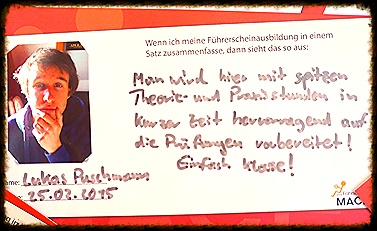 Wenn ich meine Führerscheinausbildung in einem
Satz zusammenfasse, dann sieht das so aus:
Man wird hier mit spitzen
Theorie- und Praxisstunden in
kurzer Zeit hervorragend auf
die Prüfungen vorbereitet!
Einfach klasse!
ame: Lukas Puschmann
25.03.2015
MAC